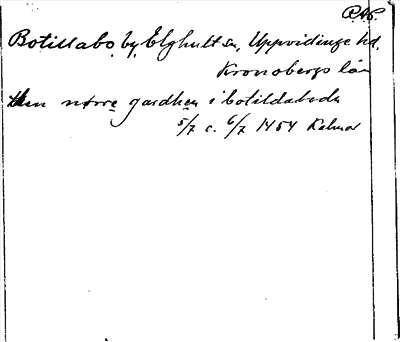 P.A.P.
Botillabo by, Elghult sn, Uppvidinge hd.
Kronobergs län
then nørre gardhen i botildaboda
5/7 c. 6/7 1454 Kalmar